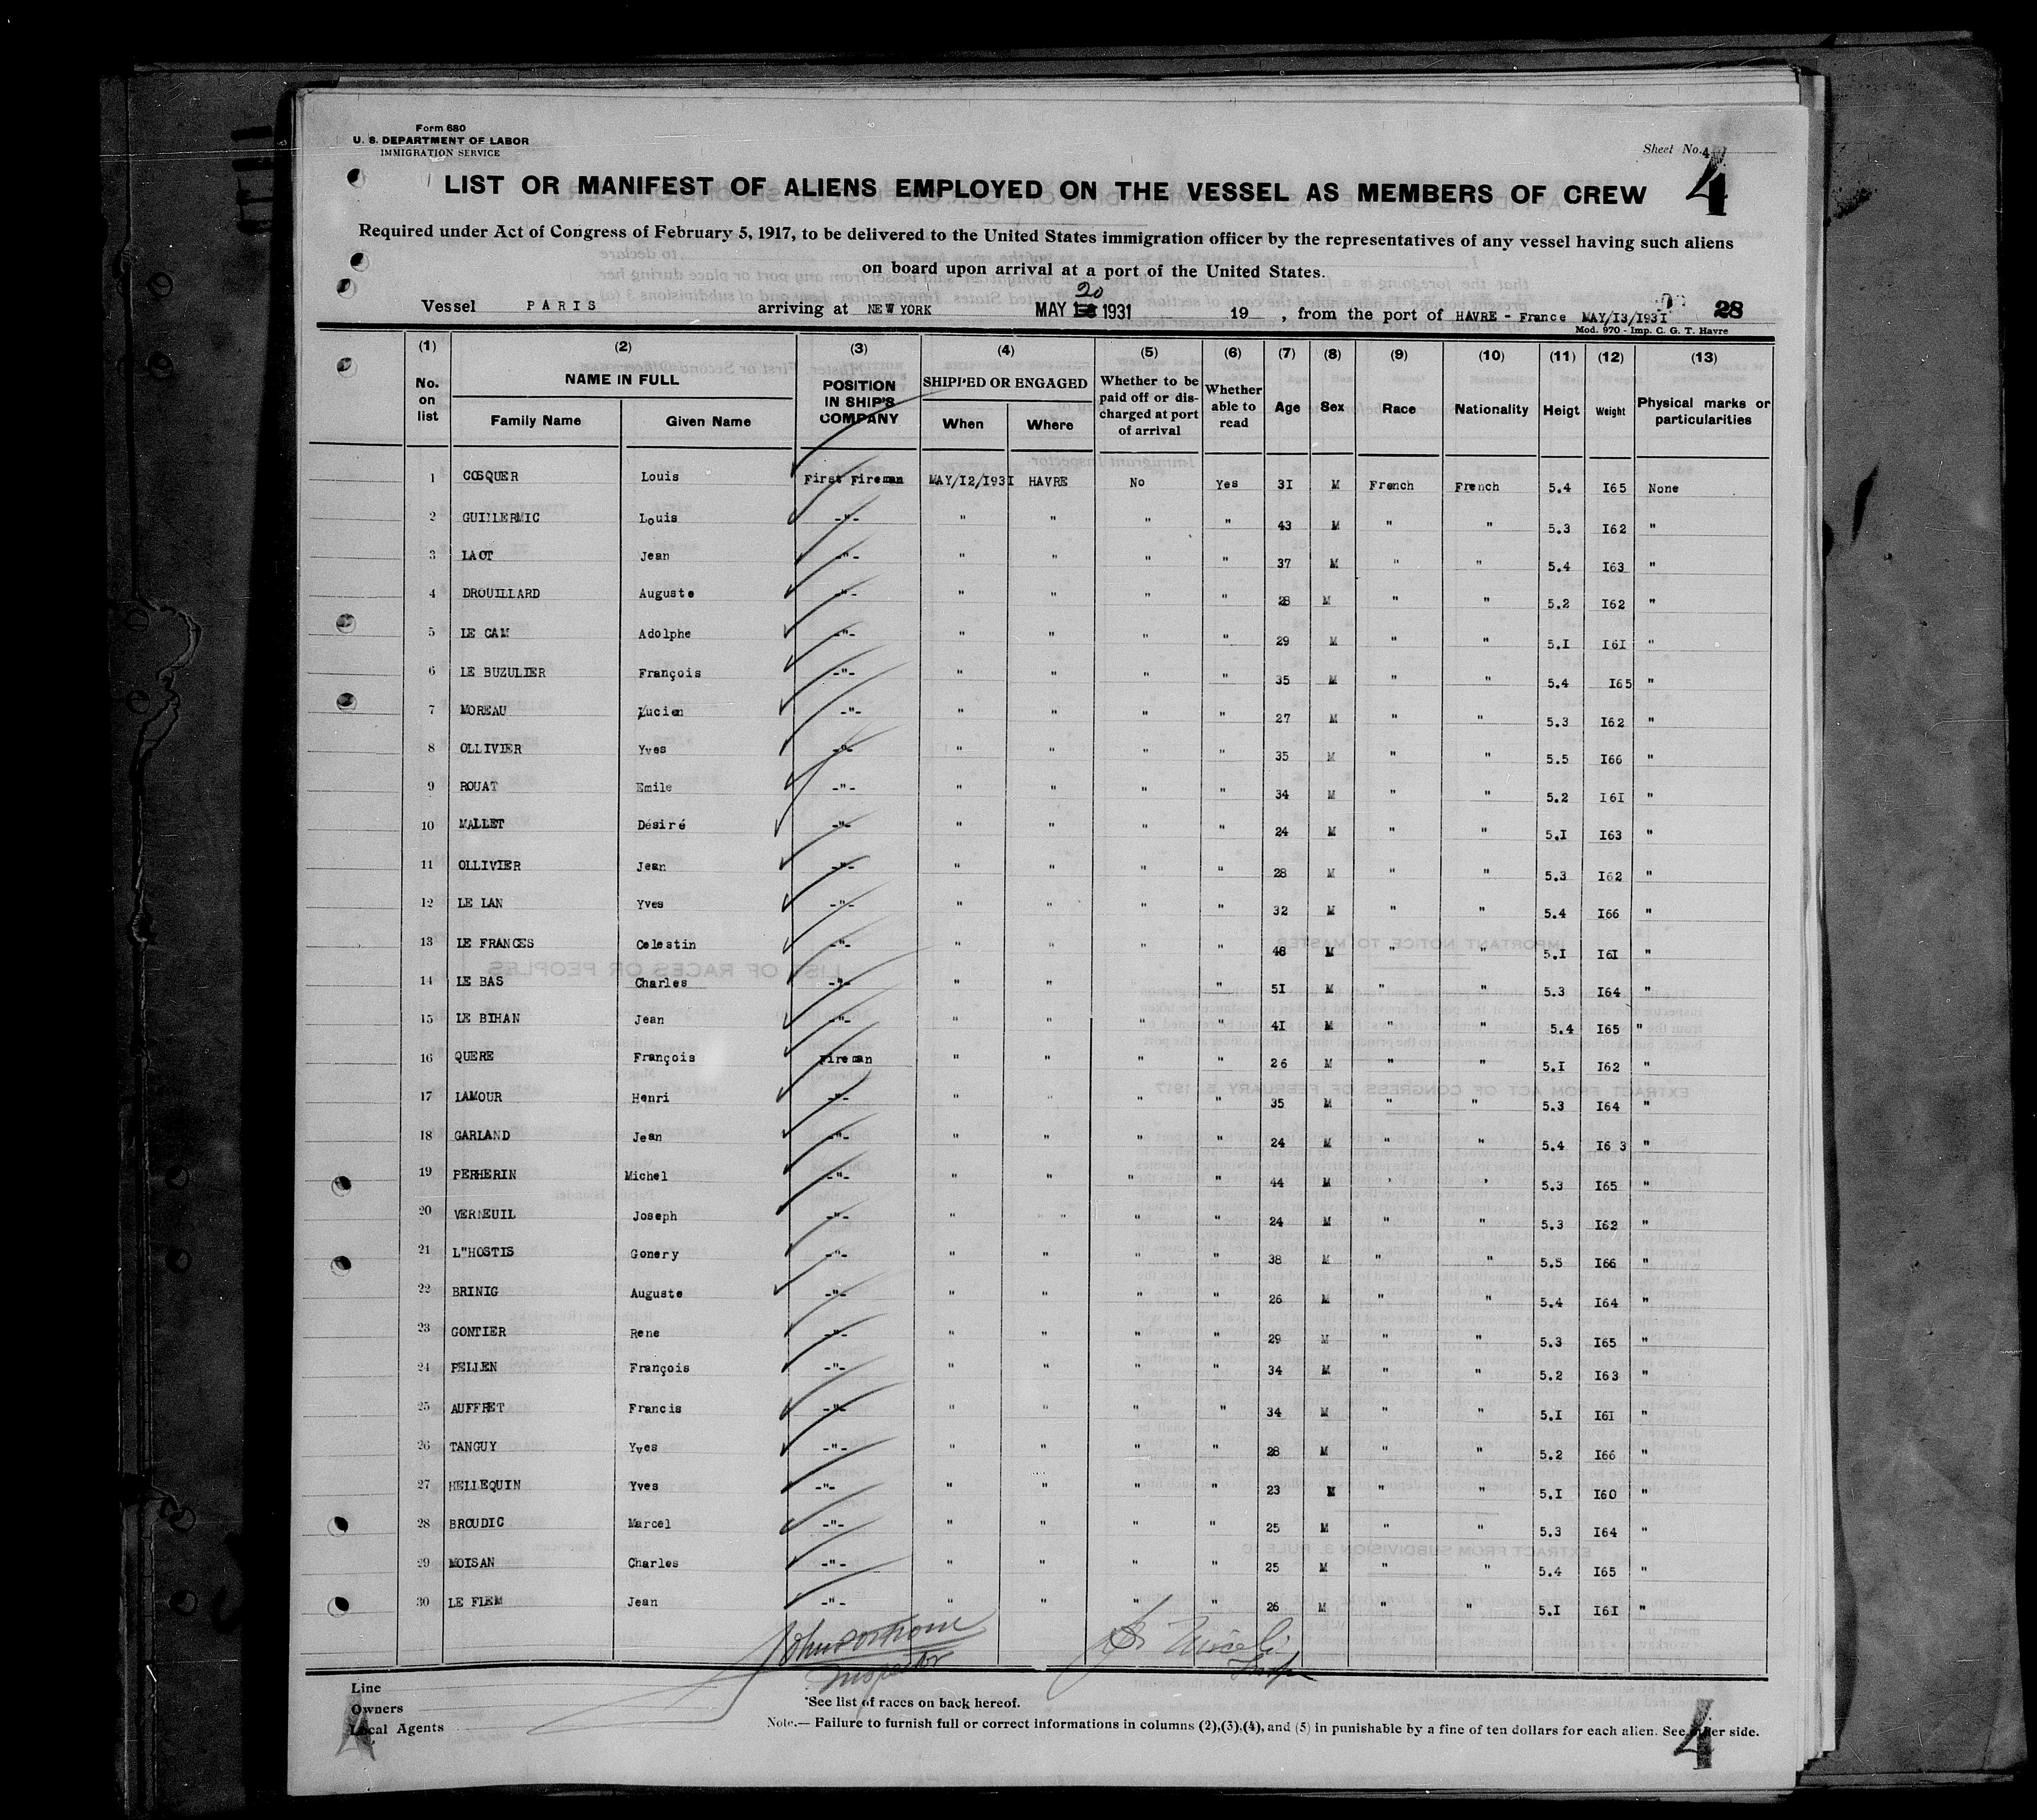 Form 680
U. S. DEPARTMENT OF LABOR
IMMIGRATION SERVICE
Sheet No. 4
4
LIST OR MANIFEST OF ALIENS EMPLOYED ON THE VESSEL AS MEMBERS OF CREW
Required under Act of Congress of February 5, 1917, to be delivered to the United States immigration officer by the representatives of any vessel having such aliens
on board upon arrival at a port of the United States.
Vessel PARIS arriving at NEW YORK MAY 20 1931 19 , from the port of HAVRE - France MAY/I3/I93I 28
Mod. 970 - Imp. C. G. T. Havre
(1) (2) (3) (4) (5) (6) (7) (8) (9) (10) (11) (12) (13)
No. on list NAME IN FULL Family Name Given Name POSITION IN SHIP'S COMPANY SHIPPED OR ENGAGED When Where Whether to be paid off or discharged at port of arrival Whether able to read Age Sex Race Nationality Heigt Weight Physical marks or particularities
1 COSQUER Louis First Fireman MAY/I2/I93I HAVRE No Yes 3I M French French 5.4 I65 None
2 GUILLERMIC Louis -"- " " " " 43 M " " 5.3 I62 "
3 LAOT Jean -"- " " " " 37 M " " 5.4 I63 "
4 DROUILLARD Auguste -"- " " " " 28 M " " 5.2 I62 "
5 LE CAM Adolphe -"- " " " " 29 M " " 5.I I6I "
6 LE BUZULIER François -"- " " " " 35 M " " 5.4 I65 "
7 MOREAU Lucien -"- " " " " 27 M " " 5.3 I62 "
8 OLLIVIER Yves -"- " " " " 35 M " " 5.5 I66 "
9 ROUAT Emile -"- " " " " 34 M " " 5.2 I6I "
10 MALLET Désiré -"- " " " " 24 M " " 5.I I63 "
11 OLLIVIER Jean -"- " " " " 28 M " " 5.3 I62 "
12 LE LAN Yves -"- " " " " 32 M " " 5.4 I66 "
13 LE FRANCES Celestin -"- " " " " 48 M " " 5.I I6I "
14 LE BAS Charles -"- " " " " 5I M " " 5.3 I64 "
15 LE BIHAN Jean -"- " " " " 4I M " " 5.4 I65 "
16 QUERE François Fireman " " " " 26 M " " 5.I I62 "
17 LAMOUR Henri -"- " " " " 35 M " " 5.3 I64 "
18 GARLAND Jean -"- " " " " 24 M " " 5.4 I6 3 "
19 PERHERIN Michel -"- " " " " 44 M " " 5.3 I65 "
20 VERNEUIL Joseph -"- " " " " " 24 M " " 5.3 I62 "
21 L"HOSTIS Gonery -"- " " " " 38 M " " 5.5 I66 "
22 BRINIG Auguste -"- " " " " 26 M " " 5.4 I64 "
23 GONTIER Rene -"- " " " " 29 M " " 5.3 I65 "
24 PELLEN François -"- " " " " 34 M " " 5.2 I63 "
25 AUFFRET Francis -"- " " " " 34 M " " 5.I I6I "
26 TANGUY Yves -"- " " " " 28 M " " 5.2 I66 "
27 HELLEQUIN Yves -"- " " " " 23 M " " 5.I I60 "
28 BROUDIC Marcel -"- " " " " 25 M " " 5.3 I64 "
29 MOISAN Charles -"- " " " " 25 M " " 5.4 I65 "
30 LE FIEM Jean -"- " " " " 26 M " " 5.I I6I "
Inspector
Line
Owners
Local Agents
*See list of races on back hereof.
Note.— Failure to furnish full or correct informations in columns (2),(3),(4), and (5) in punishable by a fine of ten dollars for each alien. See other side.
4
4